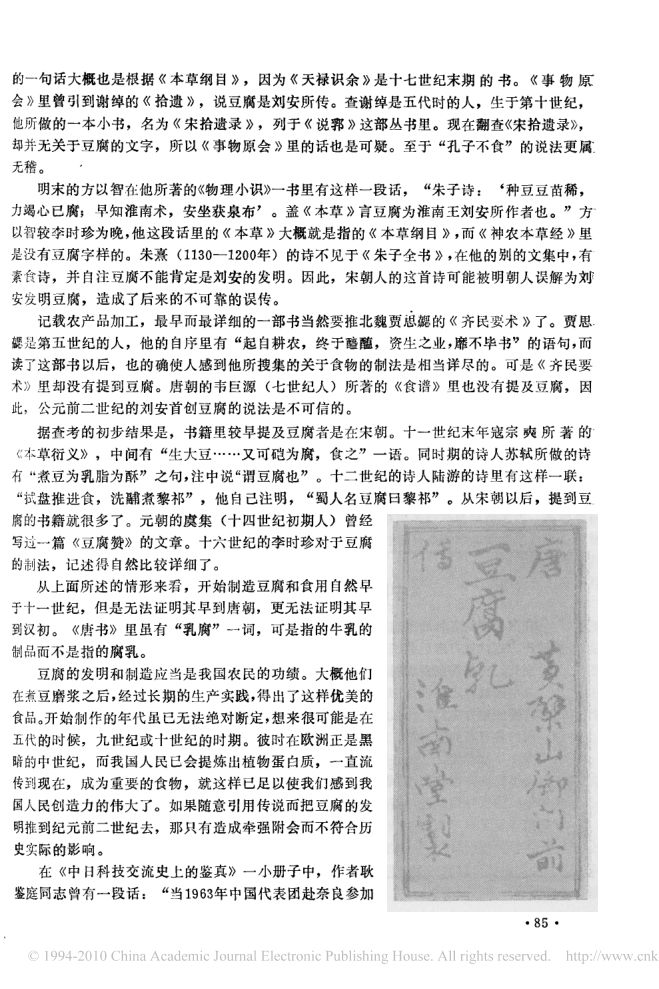 的一句话大概也是根据《本草纲目》，因为《天禄识余》是十七世纪末期的书。《事物原
会》里曾引到谢绰的《拾遗》，说豆腐是刘安所传。查谢绰是五代时的人，生于第十世纪，
他所做的一本小书，名为《宋拾遗录》，列于《说郛》这部丛书里。现在翻查《宋拾遗录》，
却并无关于豆腐的文字，所以《事物原会》里的话也是可疑。至于“孔子不食”的说法更属
无稽。
明末的方以智在他所著的《物理小识》一书里有这样一段话，“朱子诗：‘种豆豆苗稀，
力竭心已腐；早知淮南术，安坐获泉布’。盖《本草》言豆腐为淮南王刘安所作者也。”方
以智较李时珍为晚，他这段话里的《本草》大概就是指的《本草纲目》，而《神农本草经》里
是没有豆腐字样的。朱熹（1130—1200年）的诗不见于《朱子全书》，在他的别的文集中，有
素食诗，并自注豆腐不能肯定是刘安的发明。因此，宋朝人的这首诗可能被明朝人误解为刘
安发明豆腐，造成了后来的不可靠的误传。
记载农产品加工，最早而最详细的一部书当然要推北魏贾思勰的《齐民要术》了。贾思
勰是第五世纪的人，他的自序里有“起自耕农，终于醯醢，资生之业，靡不毕书”的语句，而
读了这部书以后，也的确使人感到他所搜集的关于食物的制法是相当详尽的。可是《齐民要
术》里却没有提到豆腐。唐朝的韦巨源（七世纪人）所著的《食谱》里也没有提及豆腐，因
此，公元前二世纪的刘安首创豆腐的说法是不可信的。
据查考的初步结果是，书籍里较早提及豆腐者是在宋朝。十一世纪末年寇宗奭所著的
《本草衍义》，中间有“生大豆……又可硙为腐，食之”一语。同时期的诗人苏轼所做的诗
有“煮豆为乳脂为酥”之句，注中说“谓豆腐也”。十二世纪的诗人陆游的诗里有这样一联：
“试盘推连食，洗鬴煮黎祁”，他自己注明，“蜀人名豆腐曰黎祁”。从宋朝以后，提到豆
腐的书籍就很多了。元朝的虞集（十四世纪初期人）曾经
写过一篇《豆腐赞》的文章。十六世纪的李时珍对于豆腐
的制法，记述得自然比较详细了。
从上面所述的情形来看，开始制造豆腐和食用自然早
于十一世纪，但是无法证明其早到唐朝，更无法证明其早
到汉初。《唐书》里虽有“乳腐”一词，可是指的牛乳的
制品而不是指的腐乳。
豆腐的发明和制造应当是我国农民的功绩。大概他们
在煮豆磨浆之后，经过长期的生产实践，得出了这样优美的
食品。开始制作的年代虽已无法绝对断定，想来很可能是在
五代的时候，九世纪或十世纪的时期。彼时在欧洲正是黑
暗的中世纪，而我国人民已会提炼出植物蛋白质，一直流
传到现在，成为重要的食物，就这样已足以使我们感到我
国人民创造力的伟大了。如果随意引用传说而把豆腐的发
明推到纪元前二世纪去，那只有造成牵强附会而不符合历
史实际的影响。
在《中日科技交流史上的鉴真》一小册子中，作者耿
鉴庭同志曾有一段话：“当1963年中国代表团赴奈良参加
唐 黄檗山御门前
豆腐乳
传 淮南堂製
·85·
© 1994-2010 China Academic Journal Electronic Publishing House. All rights reserved. http://www.cnk